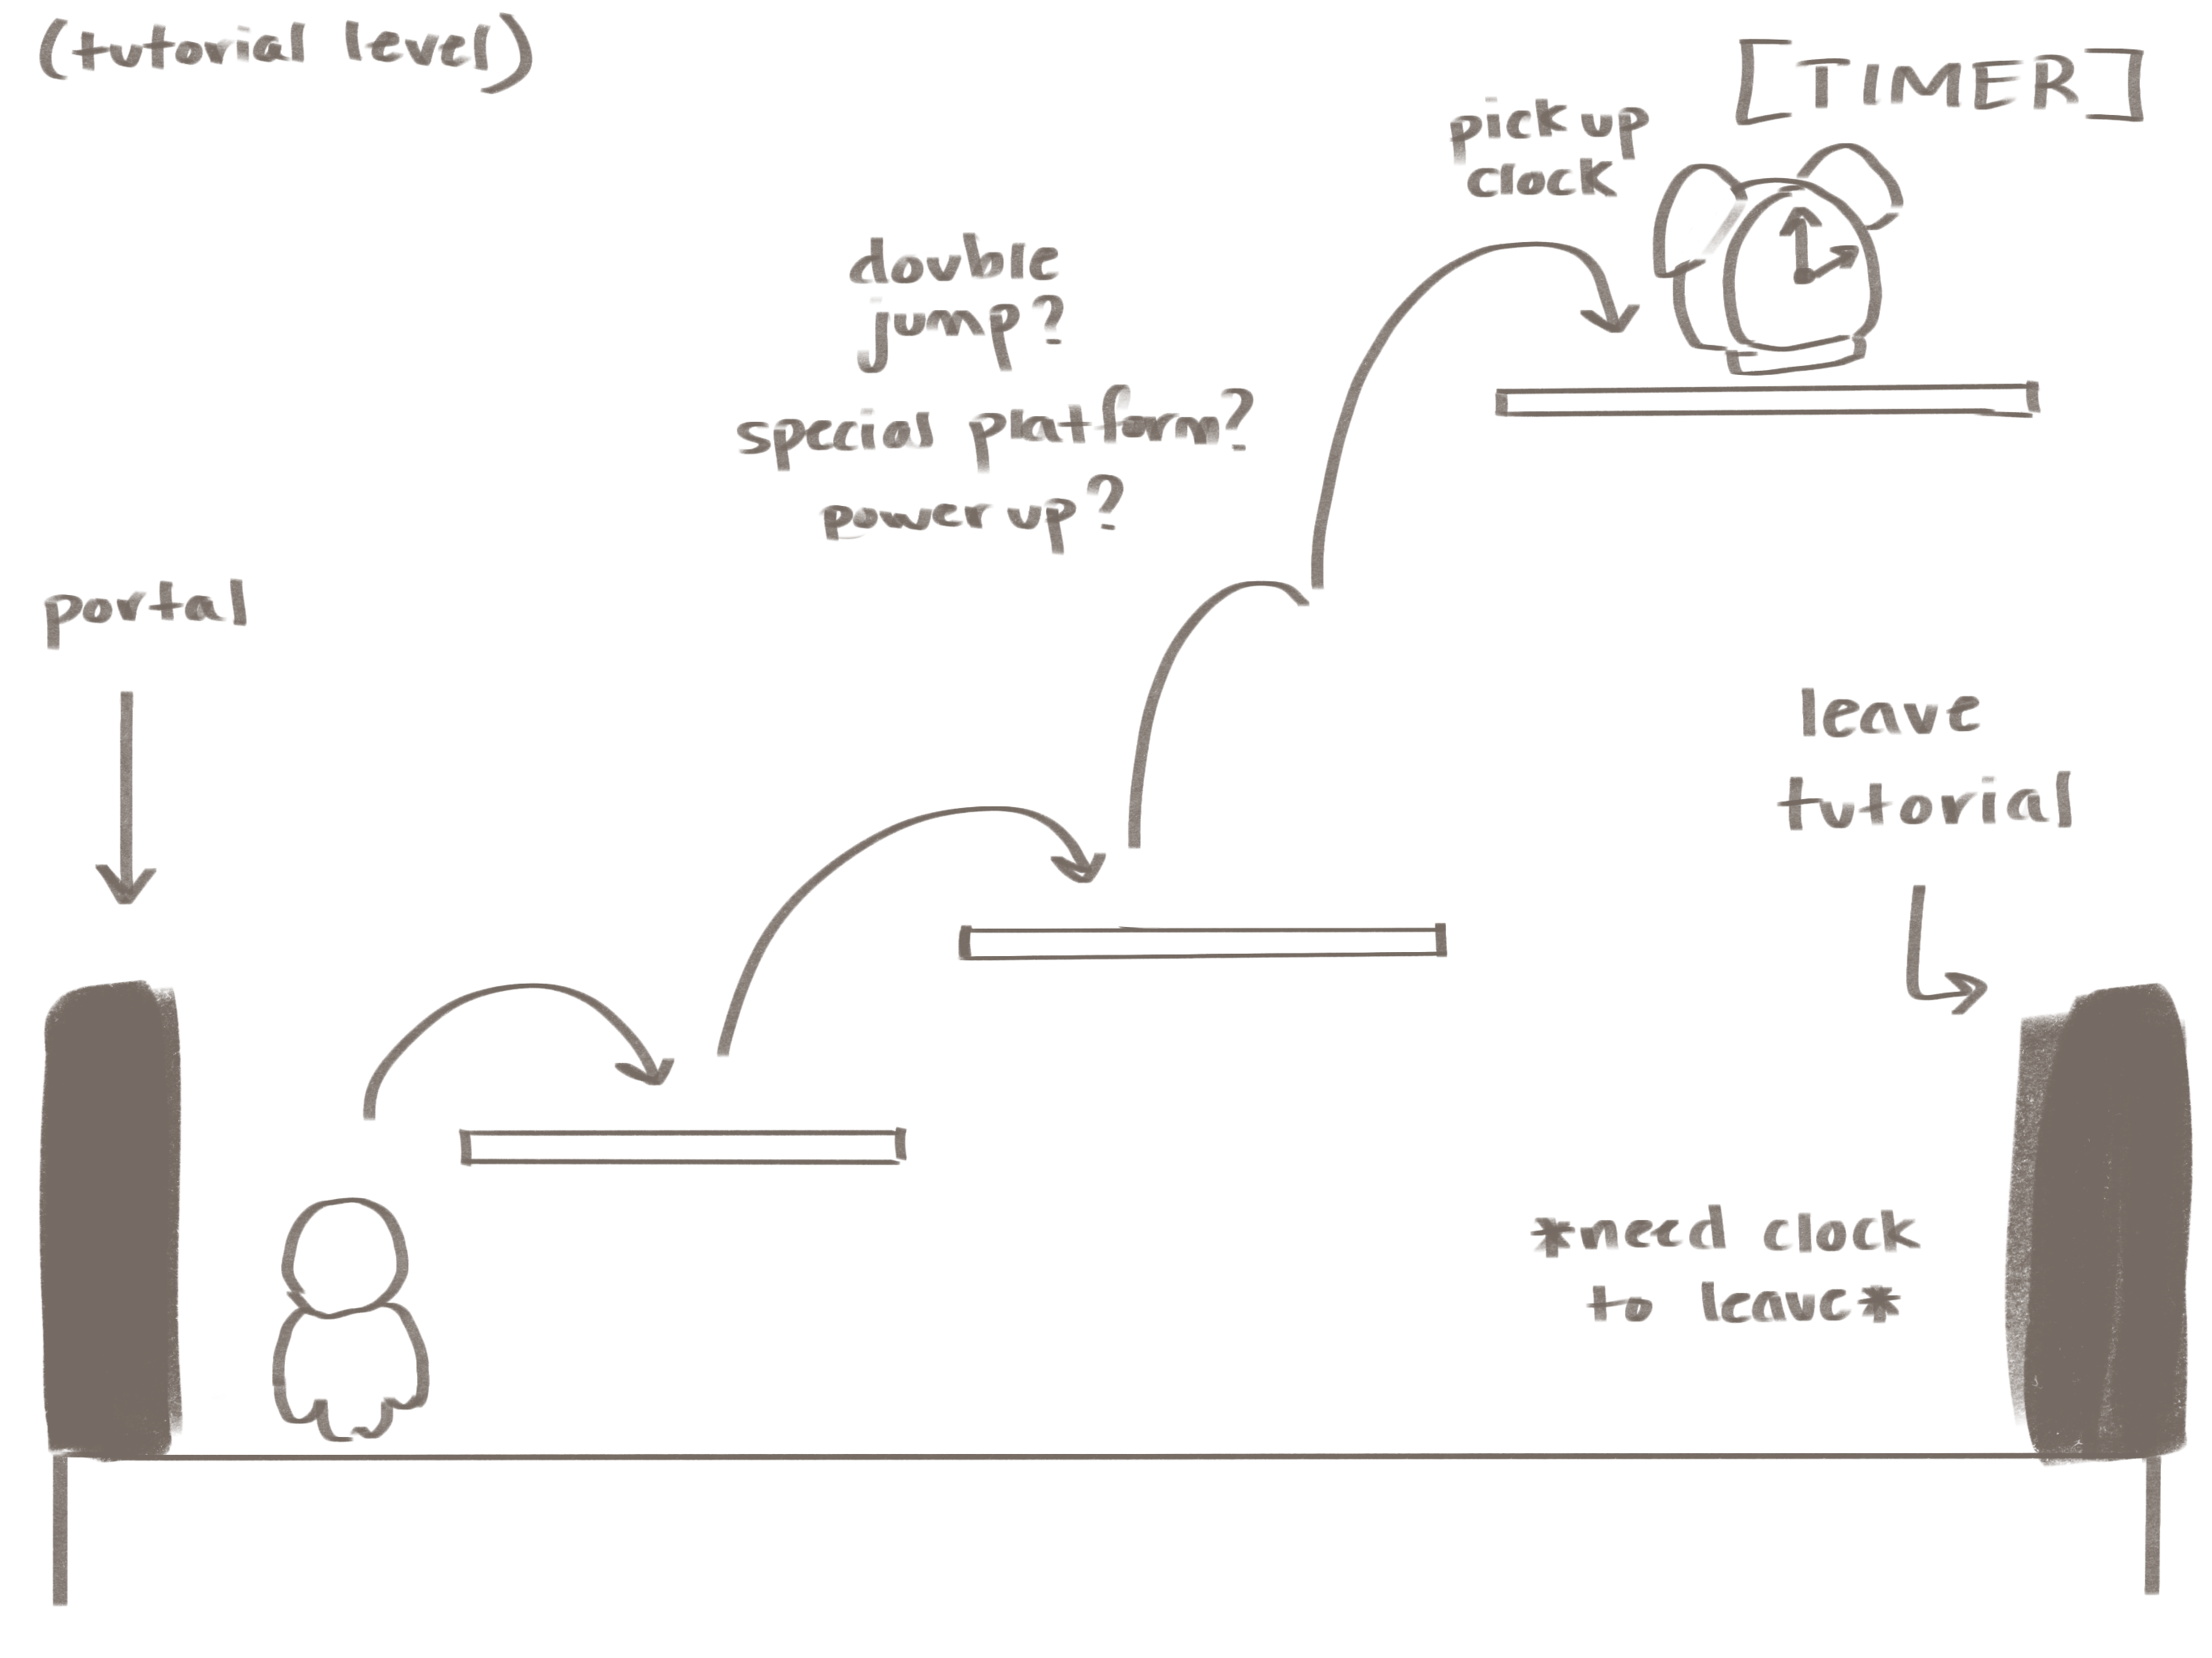 (tutorial level)
[TIMER]
pick up
clock
double
jump?
special platform?
power up?
portal
leave
tutorial
*need clock
to leave*